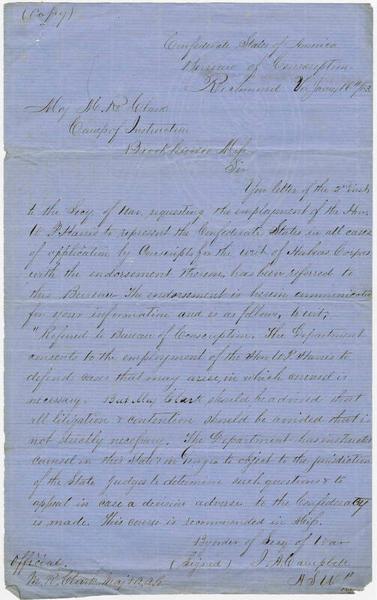 (Copy)
Confederate States of America
Bureau of Conscription
Richmond Va Jany 16th /63
Maj M. R. Clark
Camp of Instruction
Brookhaven Miss
Sir
Your letter of the 2d Inst
to the Secy. of War, requesting the employment of the Hon.
W. P. Harris to represent the Confederate States in all cases
of application by Conscripts for the writ of Habeas Corpus
with the endorsement thereon, has been referred to
this Bureau. The endorsement is herein communicated
for your information and is as follows, to wit;
"Referred to Bureau of Conscription. The Department
consents to the employment of the Hon W. P. Harris to
defend cases that may arise, in which counsel is
necessary. But Maj Clark should be advised that
all litigation & contention should be avoided that is
not strictly necessary. The Department has instructed
counsel in this State & in Georgia to object to the jurisdiction
of the State Judges to determine such questions & to
appeal in case a decision adverse to the Confederacy
is made. This course is recommended in Miss.
By order of Secy of War
(Signed) J. A. Campbell
Official. A S W"
M. R. Clark Maj